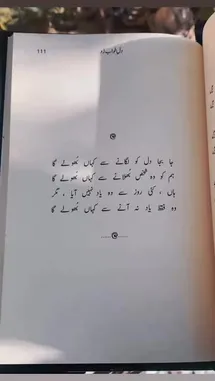 ۱۱۱
دلِ خواب زدہ
جا بجا دل کو لگانے سے کہاں بُھولے گا
ہم کو وہ شخص بُھلانے سے کہاں بُھولے گا
ہاں ، کئی روز سے وہ یاد نہیں آیا ، مگر
وہ فقط یاد نہ آنے سے کہاں بُھولے گا